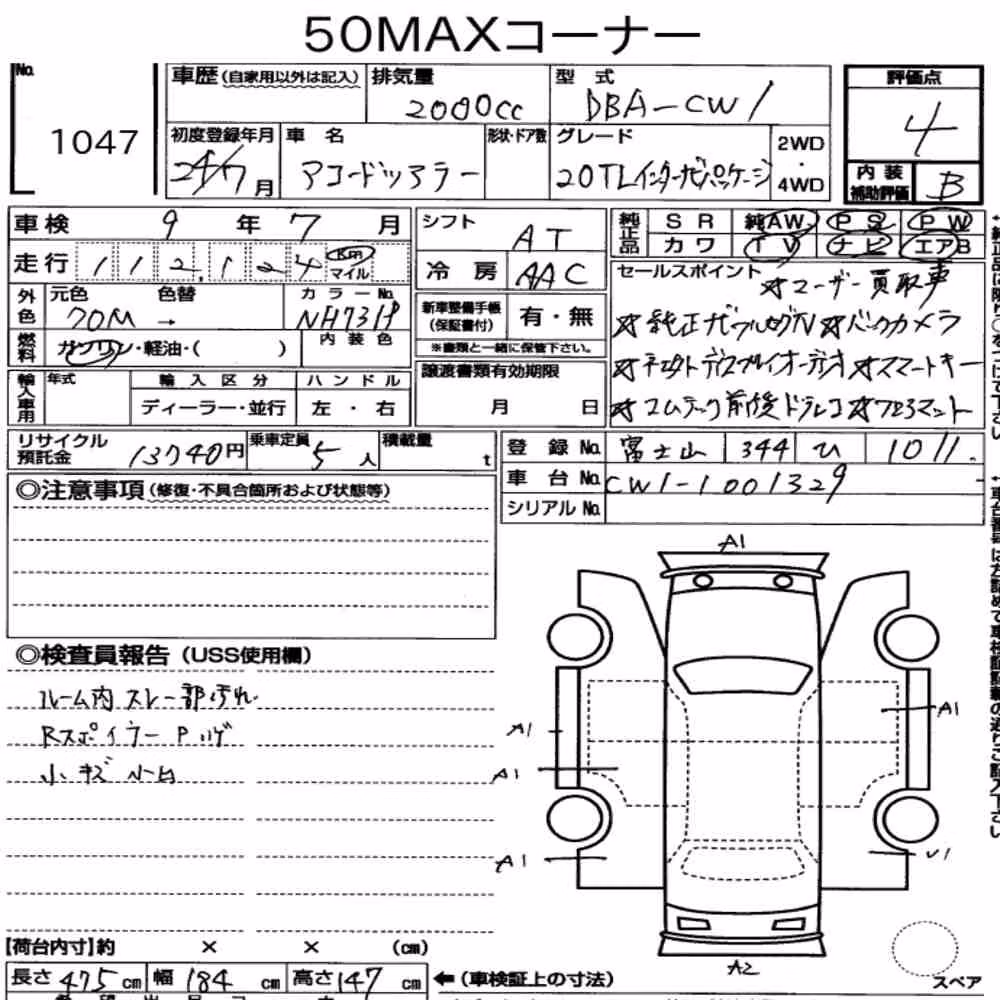 50MAXコーナー
No.
1047
車歴(自家用以外は記入)
排気量
2000cc
型式
DBA-CW1
評価点
4
初度登録年月
24/7月
車名
アコードツアラー
形状・ドア数
グレード
20TLインターナビパッケージ
2WD・4WD
内装補助評価
B
車検 9年 7月
シフト
AT
純正品 SR 純AW PS PW
カワ TV ナビ エアB
走行 112,124 Km マイル
冷房
AAC
セールスポイント
☆ユーザー買取車
外色
元色 色替 カラーNo.
70M → NH731P
新車整備手帳(保証書付)
有・無
※書類と一緒に保管下さい。
☆純正ナビフルセグTV ☆バックカメラ
燃料
ガソリン・軽油・( )
内装色
輸入車用
年式 輸入区分 ハンドル
ディーラー・並行 左・右
譲渡書類有効期限
月 日
オーディオ ☆スマートキー
☆コムテック前後ドラレコ ☆フロアマット
リサイクル預託金
13740円
乗車定員
5人
積載量
t
登録No. 富士山 344 ひ 1011
車台No. CW1-1001329
シリアルNo.
◎注意事項(修復・不具合箇所および状態等)
◎検査員報告(USS使用欄)
ルーム内 スレ一部汚れ
Rスポイラー Pハゲ
小キズ
A1
A1
A1
A1
A1
U1
A2
スペア
[荷台内寸]約 × × (cm)
長さ 475 cm 幅 184 cm 高さ 147 cm
←(車検証上の寸法)